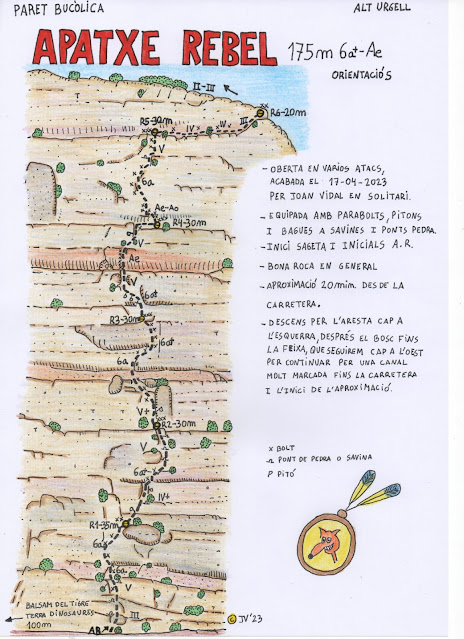 PARET BUCÒLICA
ALT URGELL
APATXE REBEL 175m 6a+-Ae
ORIENTACIÓ S
II-III
R6-20m
R5-30m
IV
IV
III
V
6a
Ae-Ao
R4-30m
V
Ae
V
6a+
R3-30m
6a+
6a
V+
R2-30m
V
6a+
IV+
R1-35m
6a
6a
V
III
AR
BALSAM DEL TIGRE
TERRA DINOSAURES
100m
- OBERTA EN VARIOS ATACS,
ACABADA EL 17-04-2023
PER JOAN VIDAL EN SOLITARI.
- EQUIPADA AMB PARABOLTS, PITONS
I BAGUES A SAVINES I PONTS PEDRA.
- INICI SAGETA I INICIALS A.R.
- BONA ROCA EN GENERAL
- APROXIMACIÓ 20mim. DES DE LA
CARRETERA.
- DESCENS PER L'ARESTA CAP A
L'ESQUERRA, DESPRÉS EL BOSC FINS
LA FEIXA, QUE SEGUIREM CAP A L'OEST
PER CONTINUAR PER UNA CANAL
MOLT MARCADA FINS LA CARRETERA
I L'INICI DE L'APROXIMACIÓ.
x BOLT
PONT DE PEDRA O SAVINA
P PITÓ
© JV'23